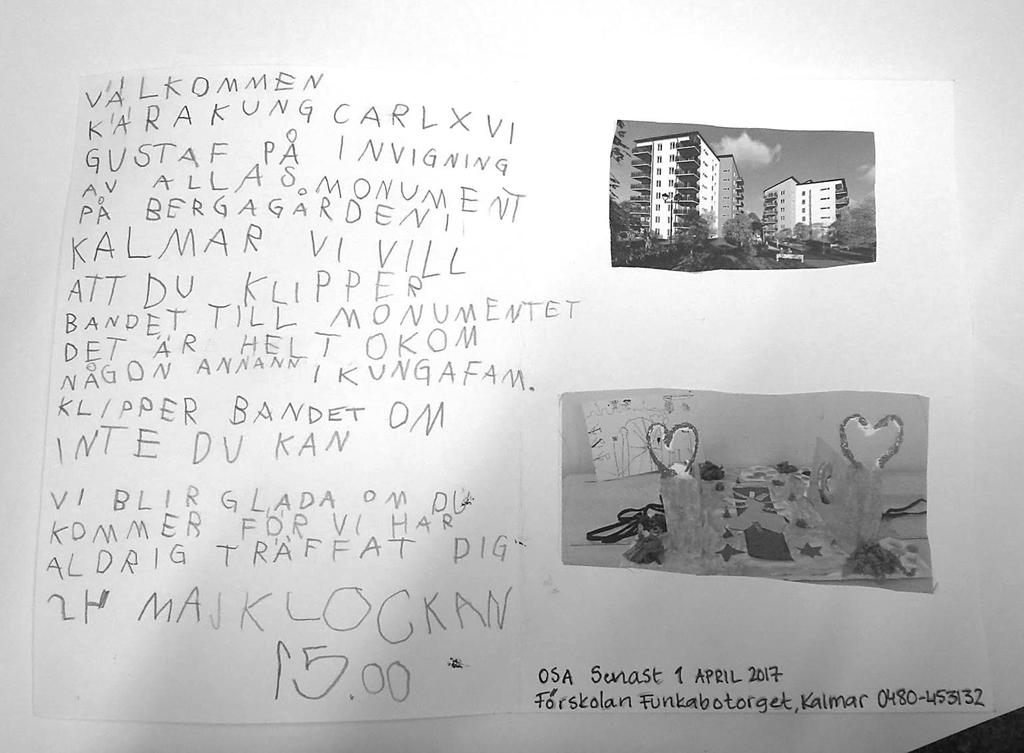 VÄLKOMMEN
KÄRA KUNG CARL XVI
GUSTAF PÅ INVIGNING
AV ALLAS MONUMENT
PÅ BERGAGÅRDEN I
KALMAR VI VILL
ATT DU KLIPPER
BANDET TILL MONUMENTET
DET ÄR HELT OKOM
NÅGON ANNANN I KUNGAFAM.
KLIPPER BANDET OM
INTE DU KAN
VI BLIR GLADA OM DU
KOMMER FÖR VI HAR
ALDRIG TRÄFFAT DIG
24 MAJ KLOCKAN
15.00
OSA Senast 1 APRIL 2017
Förskolan Funkabotorget, Kalmar 0480-453132